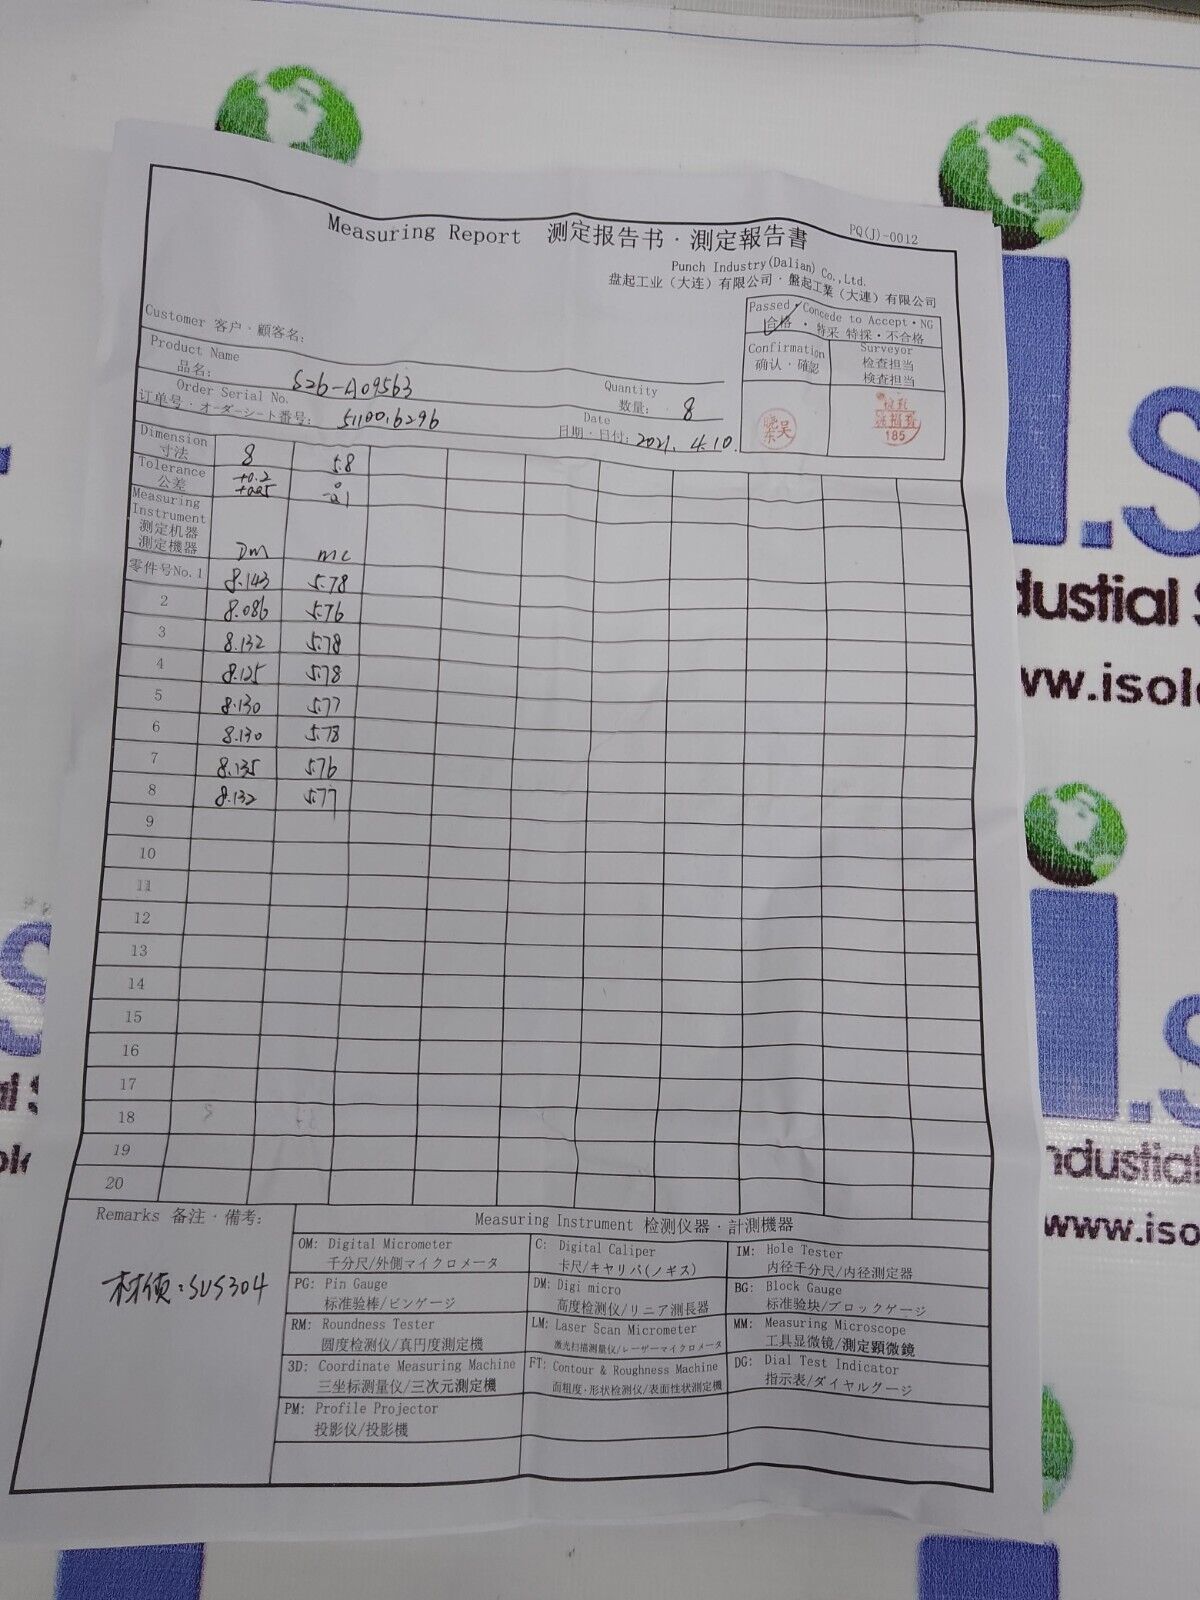 Measuring Report 测定报告书·測定報告書
PQ(J)-0012
Punch Industry(Dalian) Co.,Ltd.
盘起工业(大连)有限公司·盤起工業(大連)有限公司
Passed·Concede to Accept·NG
合格·特采 特採·不合格
Confirmation
确认·確認
Surveyor
检查担当
検査担当
185
Customer 客户·顧客名:
Product Name
品名: S26-A09563
Quantity
数量: 8
Order Serial No.
订单号·オーダーシート番号: 51100.6296
Date
日期·日付: 2021. 4.10.
Dimension
寸法 8 5.8
Tolerance
公差 +0.2 +0.05 0 -0.1
Measuring
Instrument
测定机器
測定機器 DM MC
零件号No.1 8.143 5.78
2 8.086 5.76
3 8.132 5.78
4 8.125 5.78
5 8.130 5.77
6 8.130 5.78
7 8.135 5.76
8 8.132 5.77
9
10
11
12
13
14
15
16
17
18
19
20
Remarks 备注·備考:
材侦:SUS304
Measuring Instrument 检测仪器·計測機器
OM: Digital Micrometer
千分尺/外側マイクロメータ
C: Digital Caliper
卡尺/キャリパ(ノギス)
IM: Hole Tester
内径千分尺/内径測定器
PG: Pin Gauge
标准验棒/ピンゲージ
DM: Digi micro
高度检测仪/リニア測長器
BG: Block Gauge
标准验块/ブロックゲージ
RM: Roundness Tester
圆度检测仪/真円度測定機
LM: Laser Scan Micrometer
激光扫描测量仪/レーザーマイクロメータ
MM: Measuring Microscope
工具显微镜/測定顕微鏡
3D: Coordinate Measuring Machine
三坐标测量仪/三次元測定機
FT: Contour & Roughness Machine
面粗度·形状检测仪/表面性状測定機
DG: Dial Test Indicator
指示表/ダイヤルゲージ
PM: Profile Projector
投影仪/投影機
i.S
dustial S
ww.isole
i.S
ndustial
www.iso